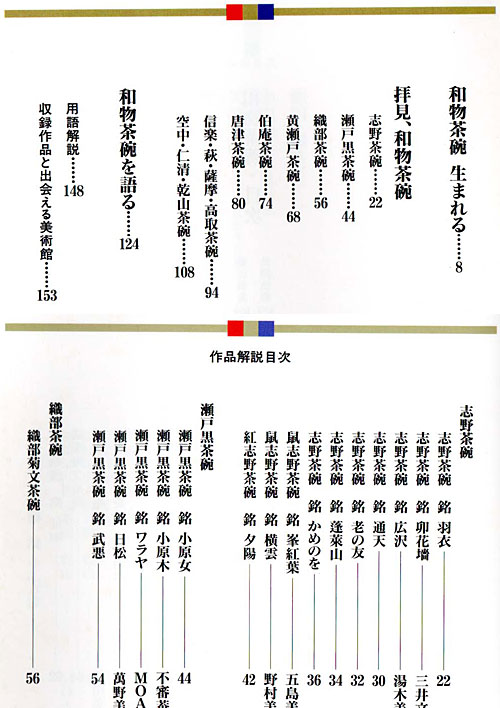 和物茶碗 生まれる……8
拝見、和物茶碗
志野茶碗……22
瀬戸黒茶碗……44
織部茶碗……56
黄瀬戸茶碗……68
伯庵茶碗……74
唐津茶碗……80
信楽・萩・薩摩・高取茶碗……94
空中・仁清・乾山茶碗……108
和物茶碗を語る……124
用語解説……148
収録作品と出会える美術館……153
作品解説目次
志野茶碗
志野茶碗 銘 羽衣 22
志野茶碗 銘 卯花墻 三井文
志野茶碗 銘 広沢 湯木美
志野茶碗 銘 通天 30
志野茶碗 銘 老の友 32
志野茶碗 銘 蓬莱山 34
志野茶碗 銘 かめのを 36
鼠志野茶碗 銘 峯紅葉 五島美
鼠志野茶碗 銘 横雲 野村美
紅志野茶碗 銘 夕陽 42
瀬戸黒茶碗
瀬戸黒茶碗 銘 小原女 44
瀬戸黒茶碗 銘 小原木 不審菴
瀬戸黒茶碗 銘 ワラヤ MOA
瀬戸黒茶碗 銘 日松 萬野美
瀬戸黒茶碗 銘 武悪 54
織部茶碗
織部菊文茶碗 56